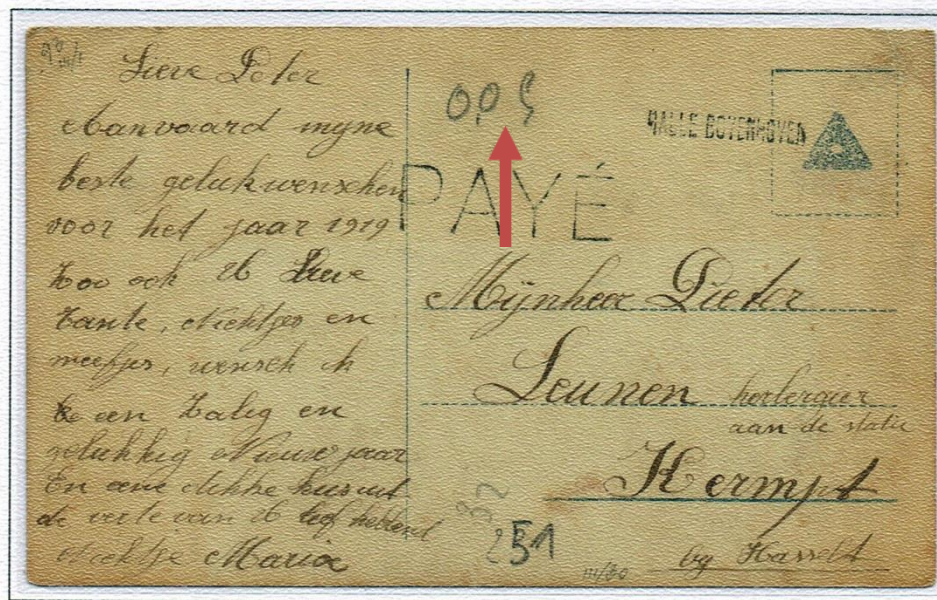 Lieve Peter
Aanvaard myne
beste gelukwenschen
voor het jaar 1919
Zoo ook U Lieve
tante, Nichtjes en
neefjes, wensch ik
U een Zalig en
gelukkig Nieuwjaar
En eene dikke kus uit
de verte van U
Nichtje Maria
0,05
HALLE BOYENHOVEN
PAYÉ
Mijnheer Pieter
Leunen herbergier
aan de statie
Kermpt
by Hasselt
32
251
III/80